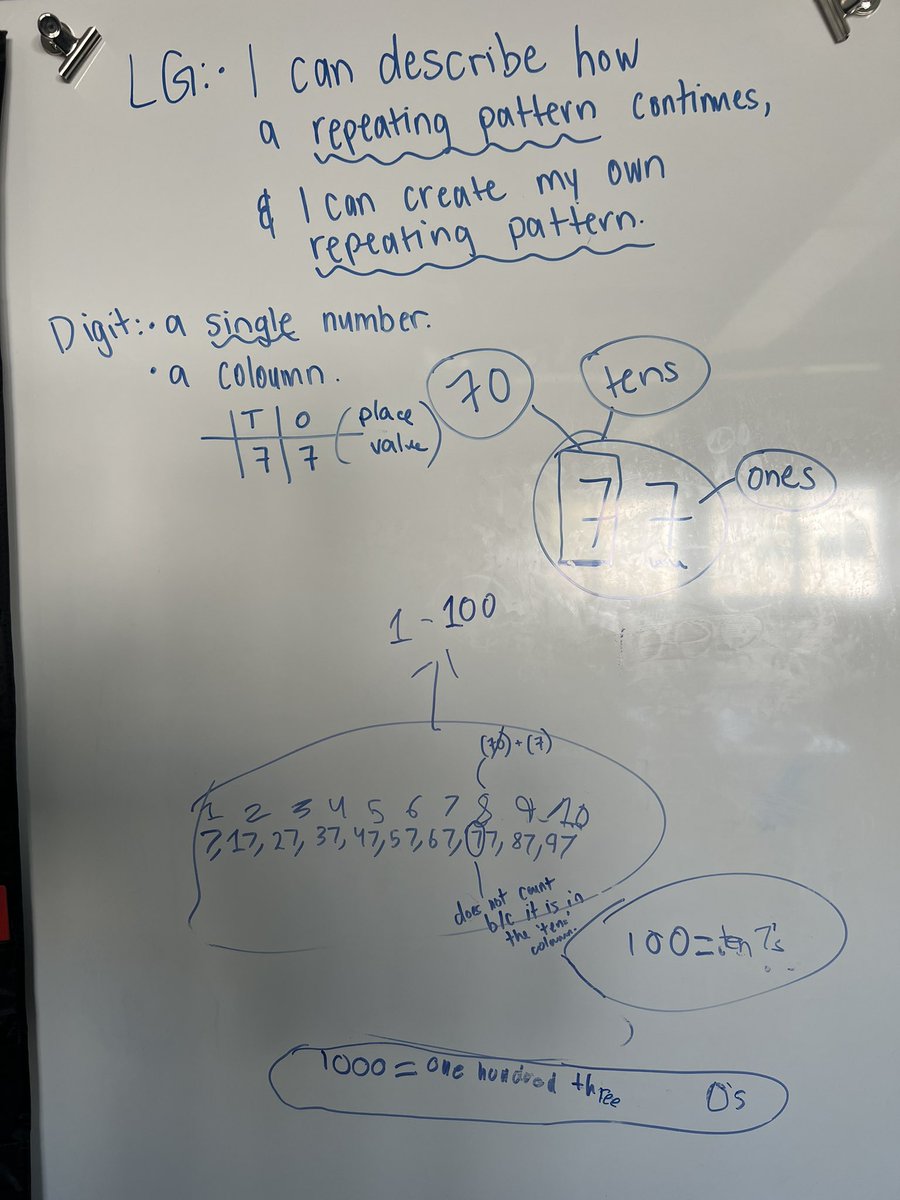 LG:• I can describe how
a repeating pattern continues,
& I can create my own
repeating pattern.
Digit:• a single number.
• a coloumn.
T O (place value)
7 7
70
tens
7 7
ones
1 - 100
(70) + (7)
1 2 3 4 5 6 7 8 9 10
7, 17, 27, 37, 47, 57, 67, 77, 87, 97
does not count
b/c it is in
the 'tens'
column.
100 = ten 7's
1000 = one hundred three 0's